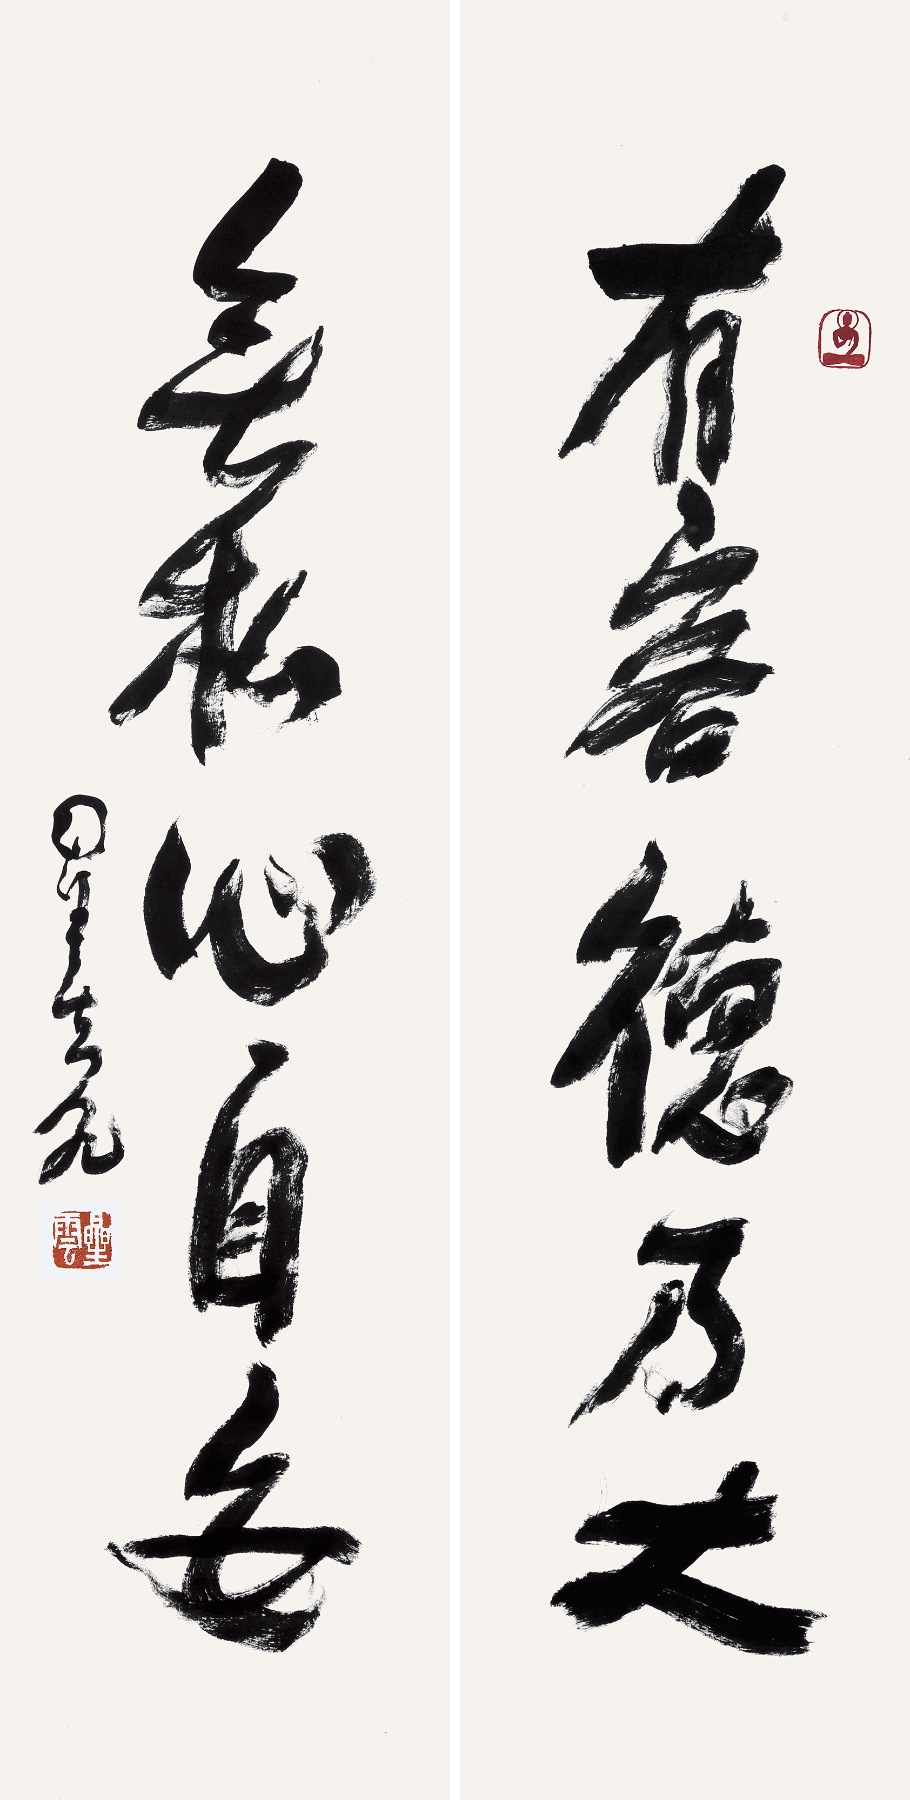 有容德乃大
無私心自安
星雲